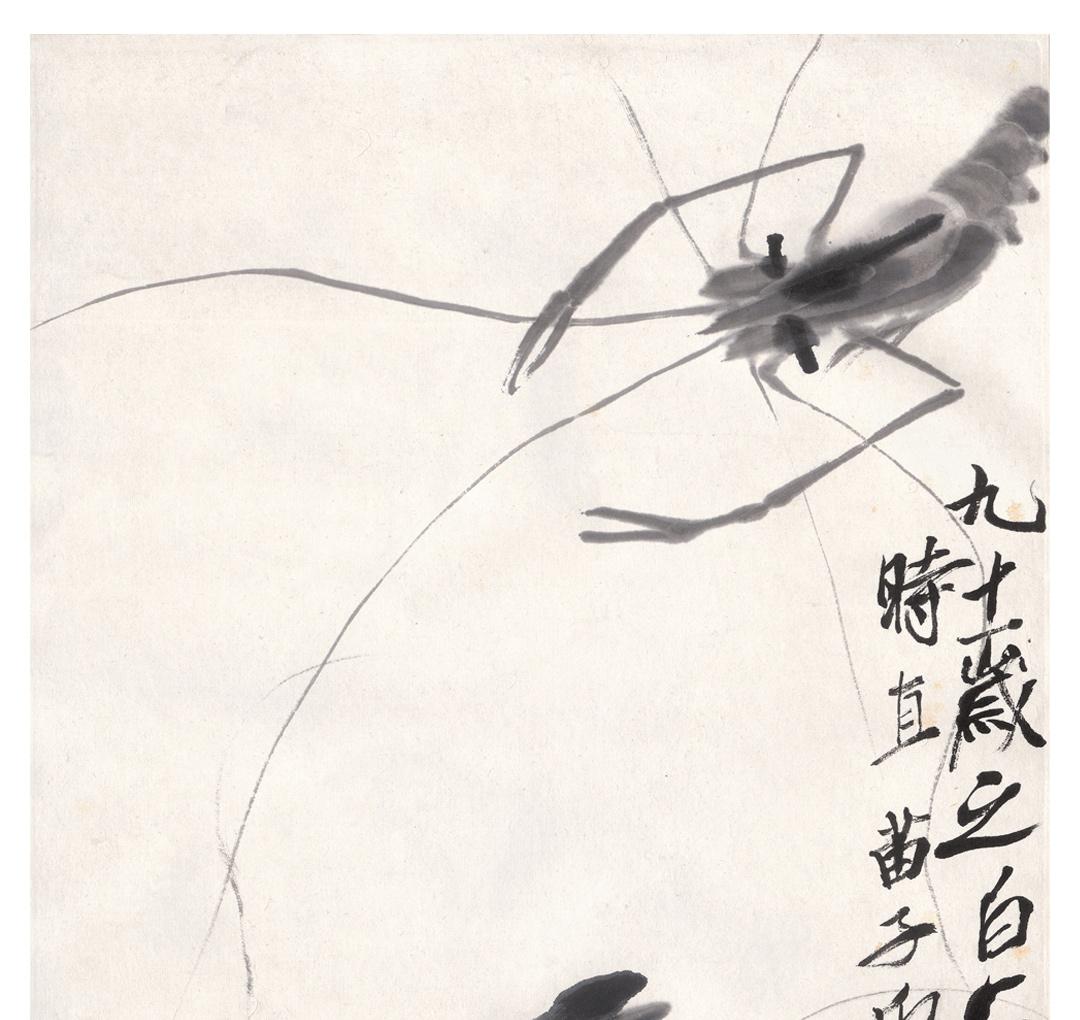 九十歲之白
時直苗子